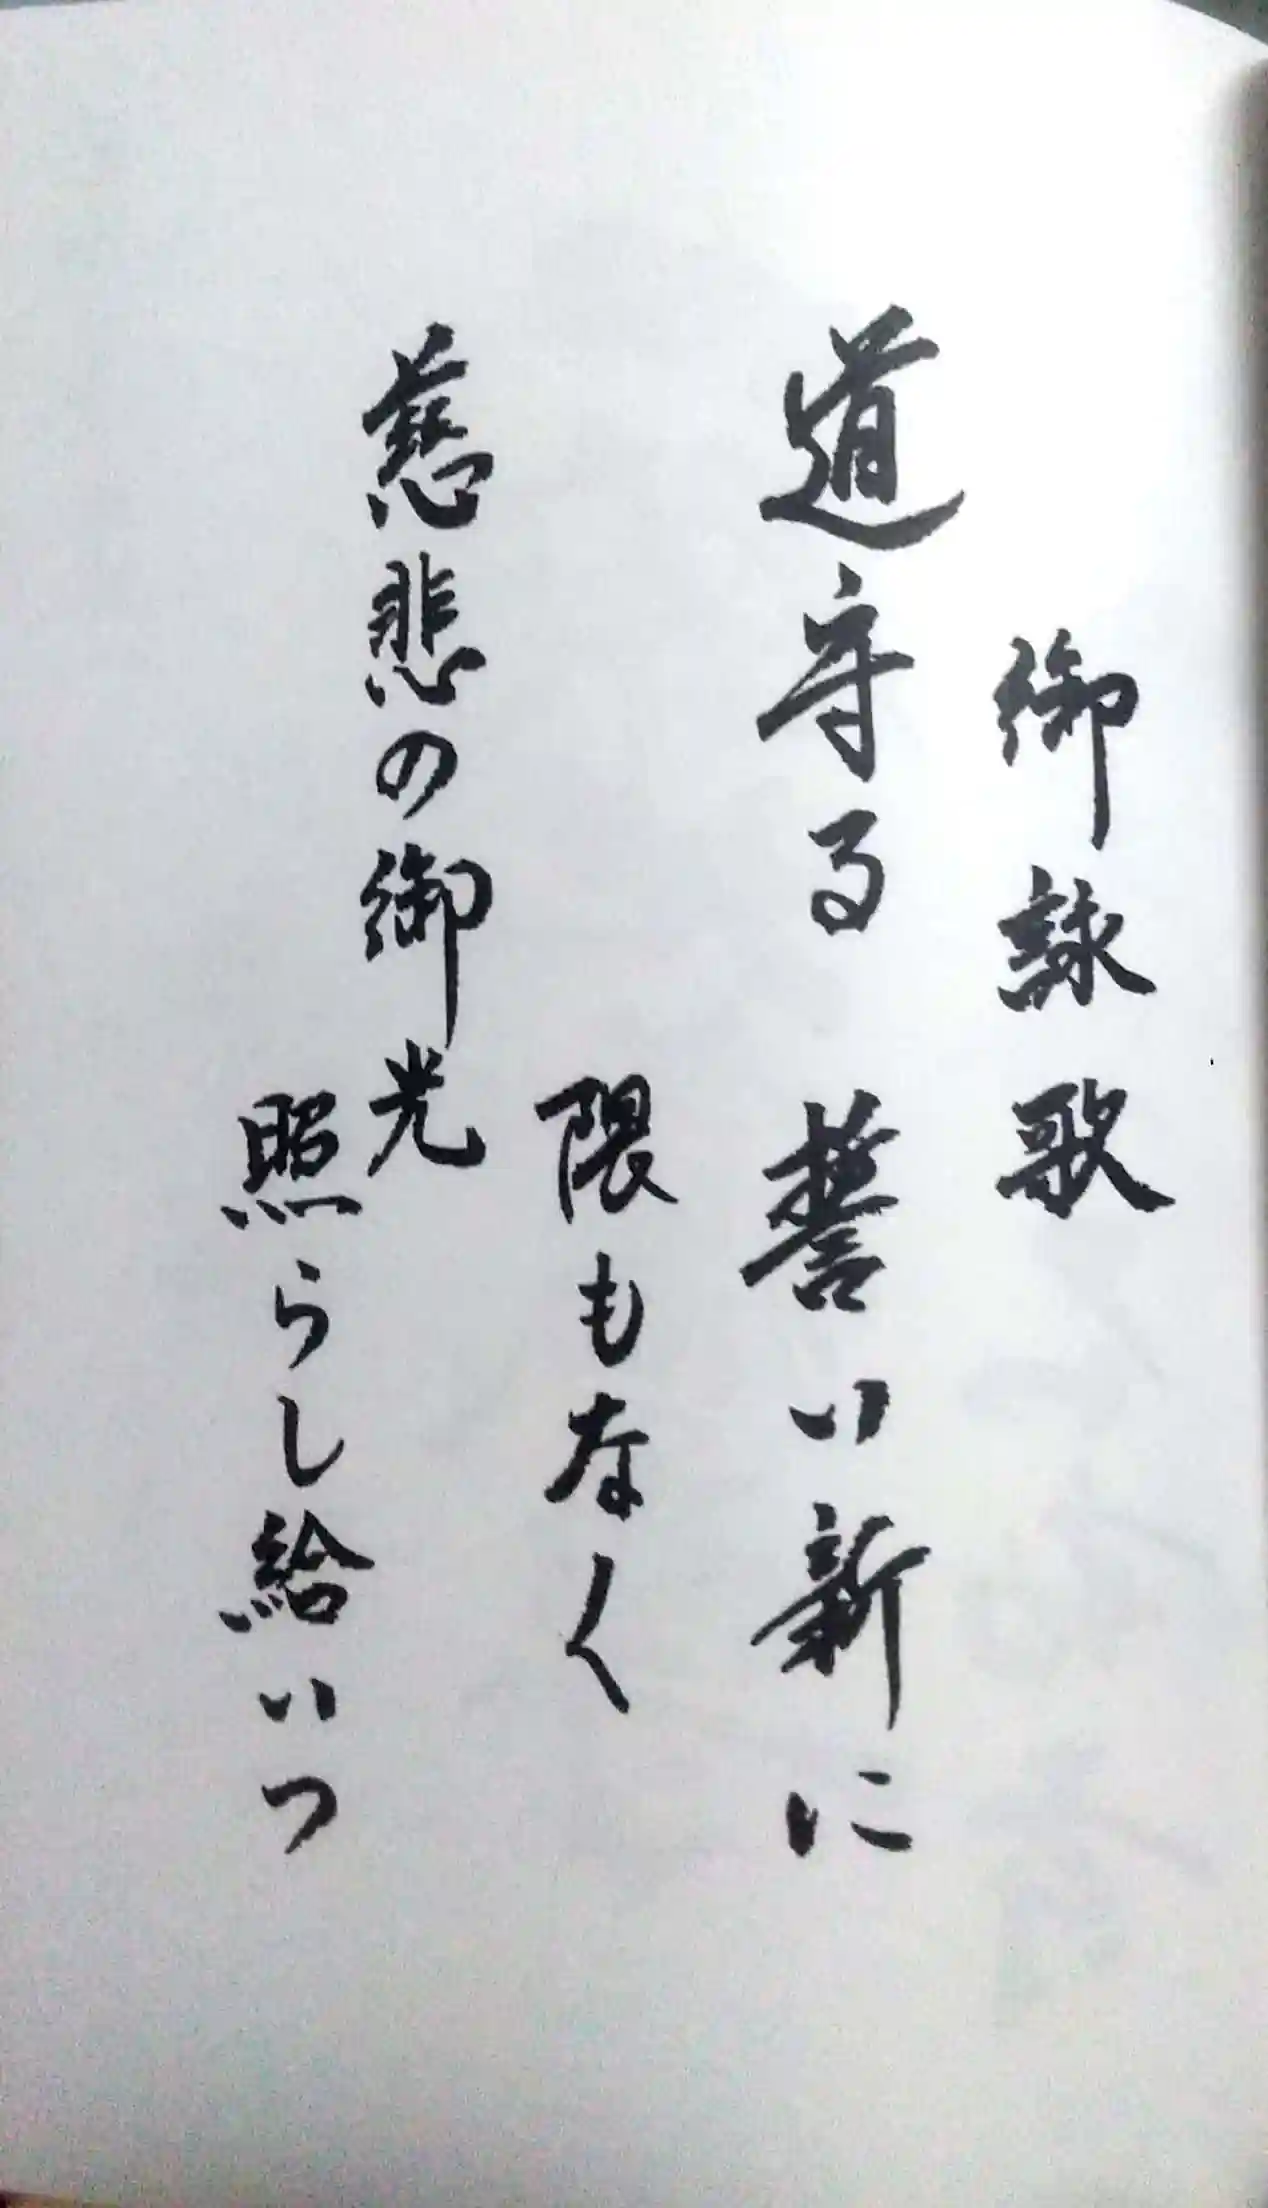 御詠歌
道守る 誓い新に
限もなく
慈悲の御光
照らし給いつ